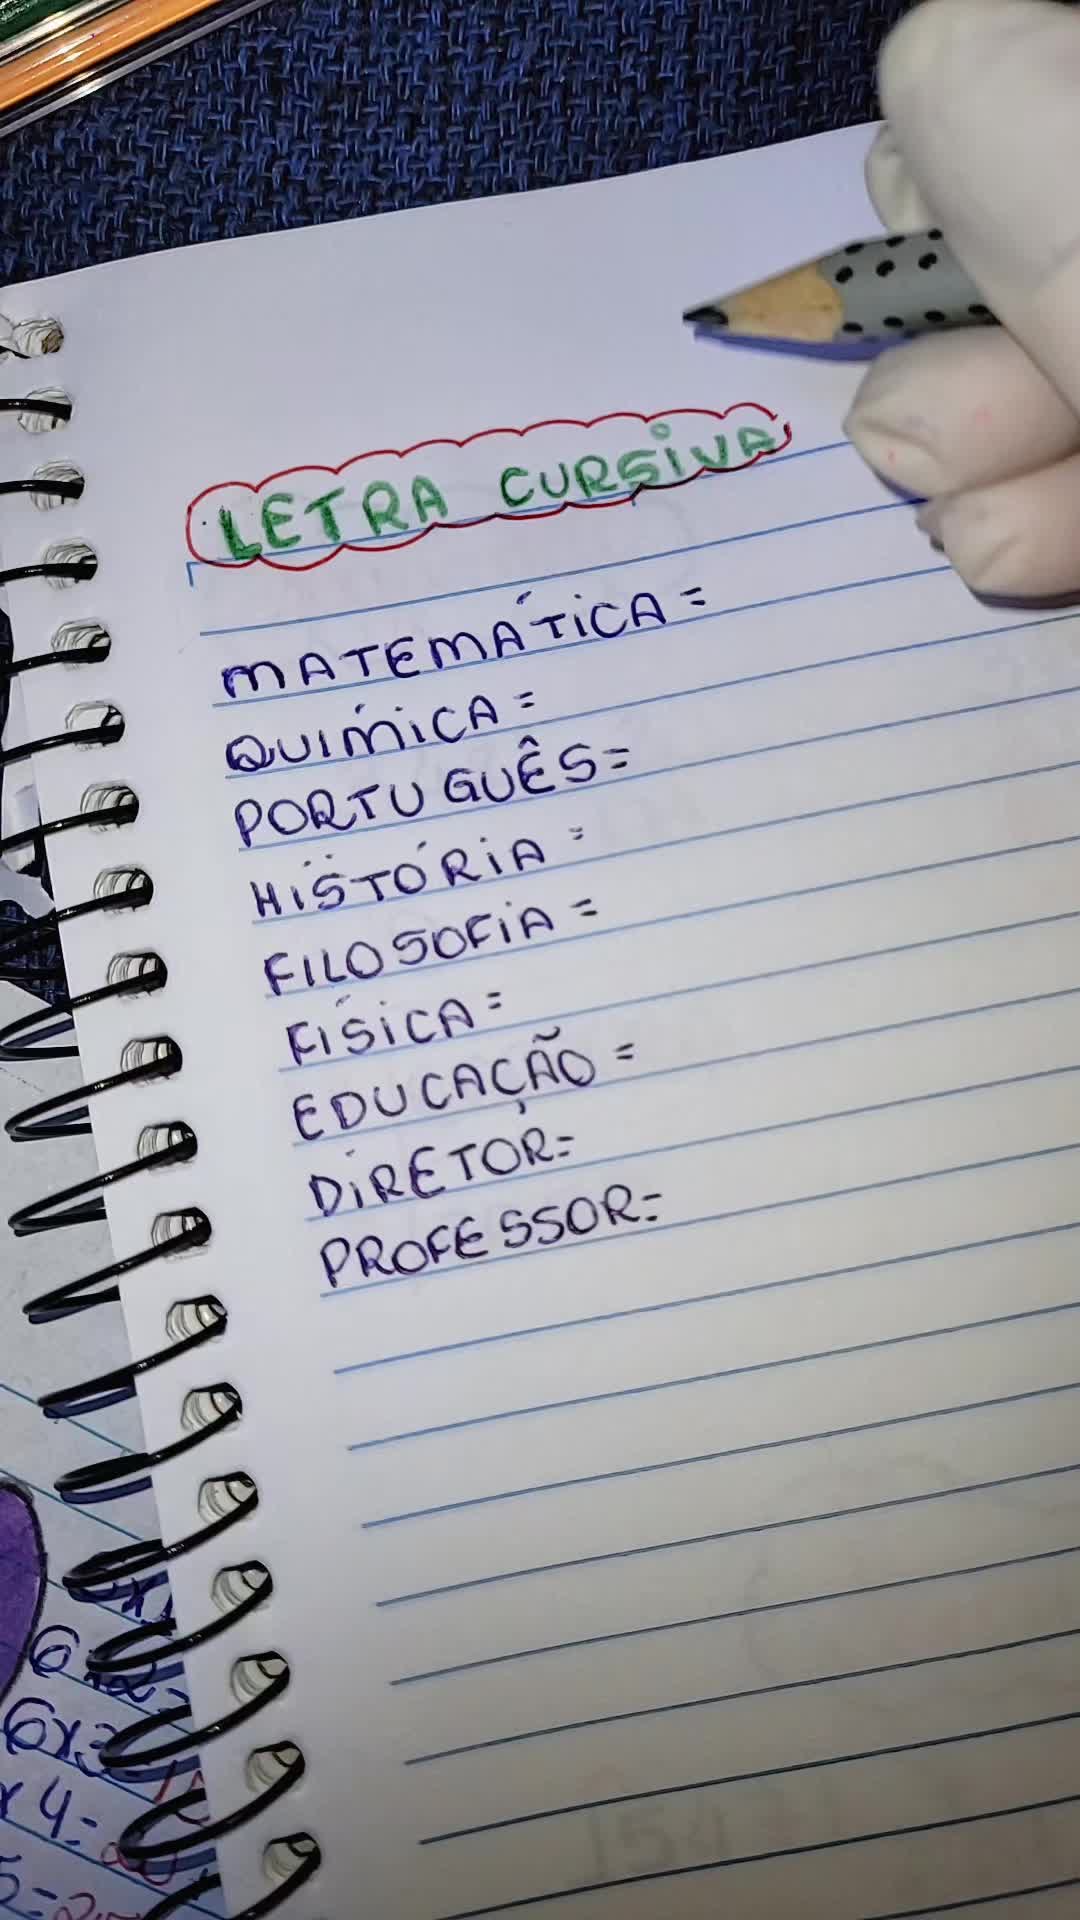 LETRA CURSIVA
MATEMÁTICA =
QUIMICA =
PORTUGUÊS=
HISTÓRIA =
FILOSOFIA =
FÍSICA =
EDUCAÇÃO =
DIRETOR=
PROFESSOR=
6x2=
6x3
x4=
5=